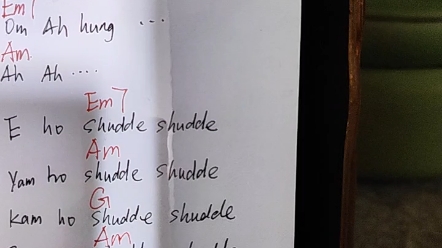 Em7
Om Ah hung ...
Am
Ah Ah ....
Em7
E ho shudde shudde
Am
Yam ho shudde shudde
G
Kam ho shudde shudde
Am